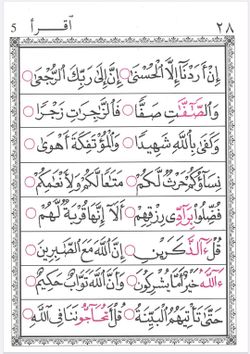 ٢٨ اقرأ 5
إِنْ أَرَدْنَآ إِلَّا الْحُسْنَىٰ ○ إِنَّ إِلَىٰ رَبِّكَ الرُّجْعَىٰ ○
وَالصَّٰٓفَّٰتِ صَفًّا ○ فَالزَّٰجِرَٰتِ زَجْرًا ○
وَكَفَىٰ بِاللَّهِ شَهِيدًا ○ وَالْمُؤْتَفِكَةَ أَهْوَىٰ ○
نِسَآؤُكُمْ حَرْثٌ لَّكُمْ ○ مَتَٰعًا لَّكُمْ وَلِأَنْعَٰمِكُمْ ○
فُضِّلُوا۟ بِرَآدِّى رِزْقِهِمْ ○ أَلَآ إِنَّهَا قُرْبَةٌ لَّهُمْ ○
قُلْ ءَآلذَّكَرَيْنِ ○ إِنَّ اللَّهَ مَعَ الصَّٰبِرِينَ ○
ءَآللَّهُ خَيْرٌ أَمَّا يُشْرِكُونَ ○ وَأَنَّ اللَّهَ تَوَّابٌ حَكِيمٌ ○
حَتَّىٰ تَأْتِيَهُمُ الْبَيِّنَةُ ○ قُلْ أَتُحَآجُّونَنَا فِى اللَّهِ ○